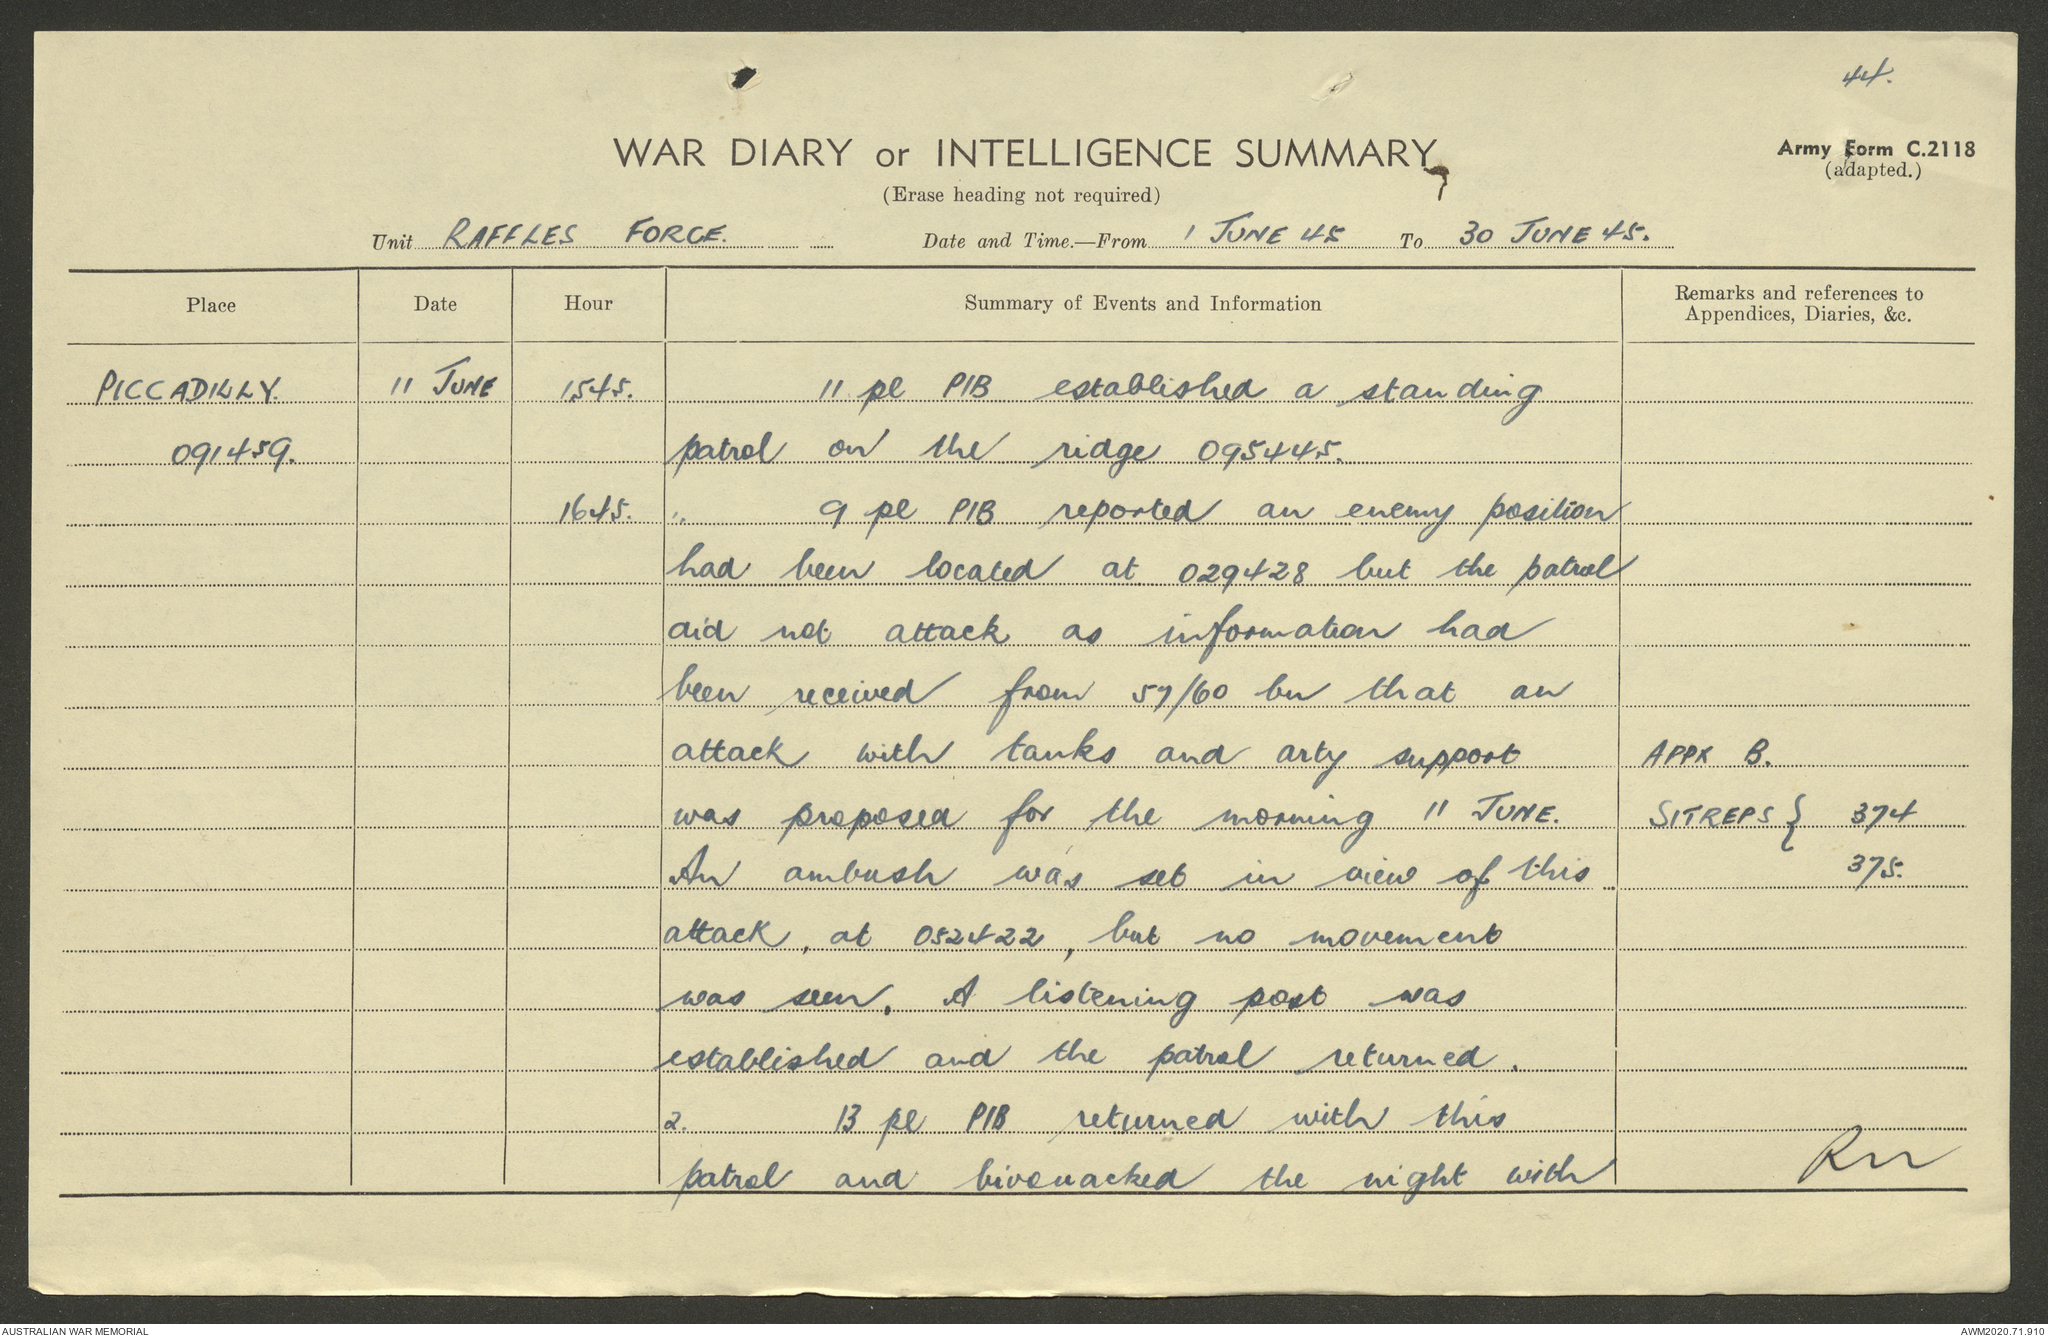 44.
WAR DIARY or INTELLIGENCE SUMMARY
Army Form C.2118
(adapted.)
(Erase heading not required)
Unit RAFFLES FORCE. Date and Time.—From 1 JUNE 45 To 30 JUNE 45.
Place Date Hour Summary of Events and Information Remarks and references to Appendices, Diaries, &c.
PICCADILLY. 11 JUNE 1545. 11 pl PIB established a standing
091459. patrol on the ridge 095445.
1645. " 9 pl PIB reported an enemy position
had been located at 029428 but the patrol
did not attack as information had
been received from 57/60 bn that an
attack with tanks and arty support APPX B.
was proposed for the morning 11 JUNE. SITREPS { 374
An ambush was set in view of this 375.
attack, at 052422, but no movement
was seen. A listening post was
established and the patrol returned.
2. 13 pl PIB returned with this
patrol and bivouacked the night with
AUSTRALIAN WAR MEMORIAL
AWM2020.71.910